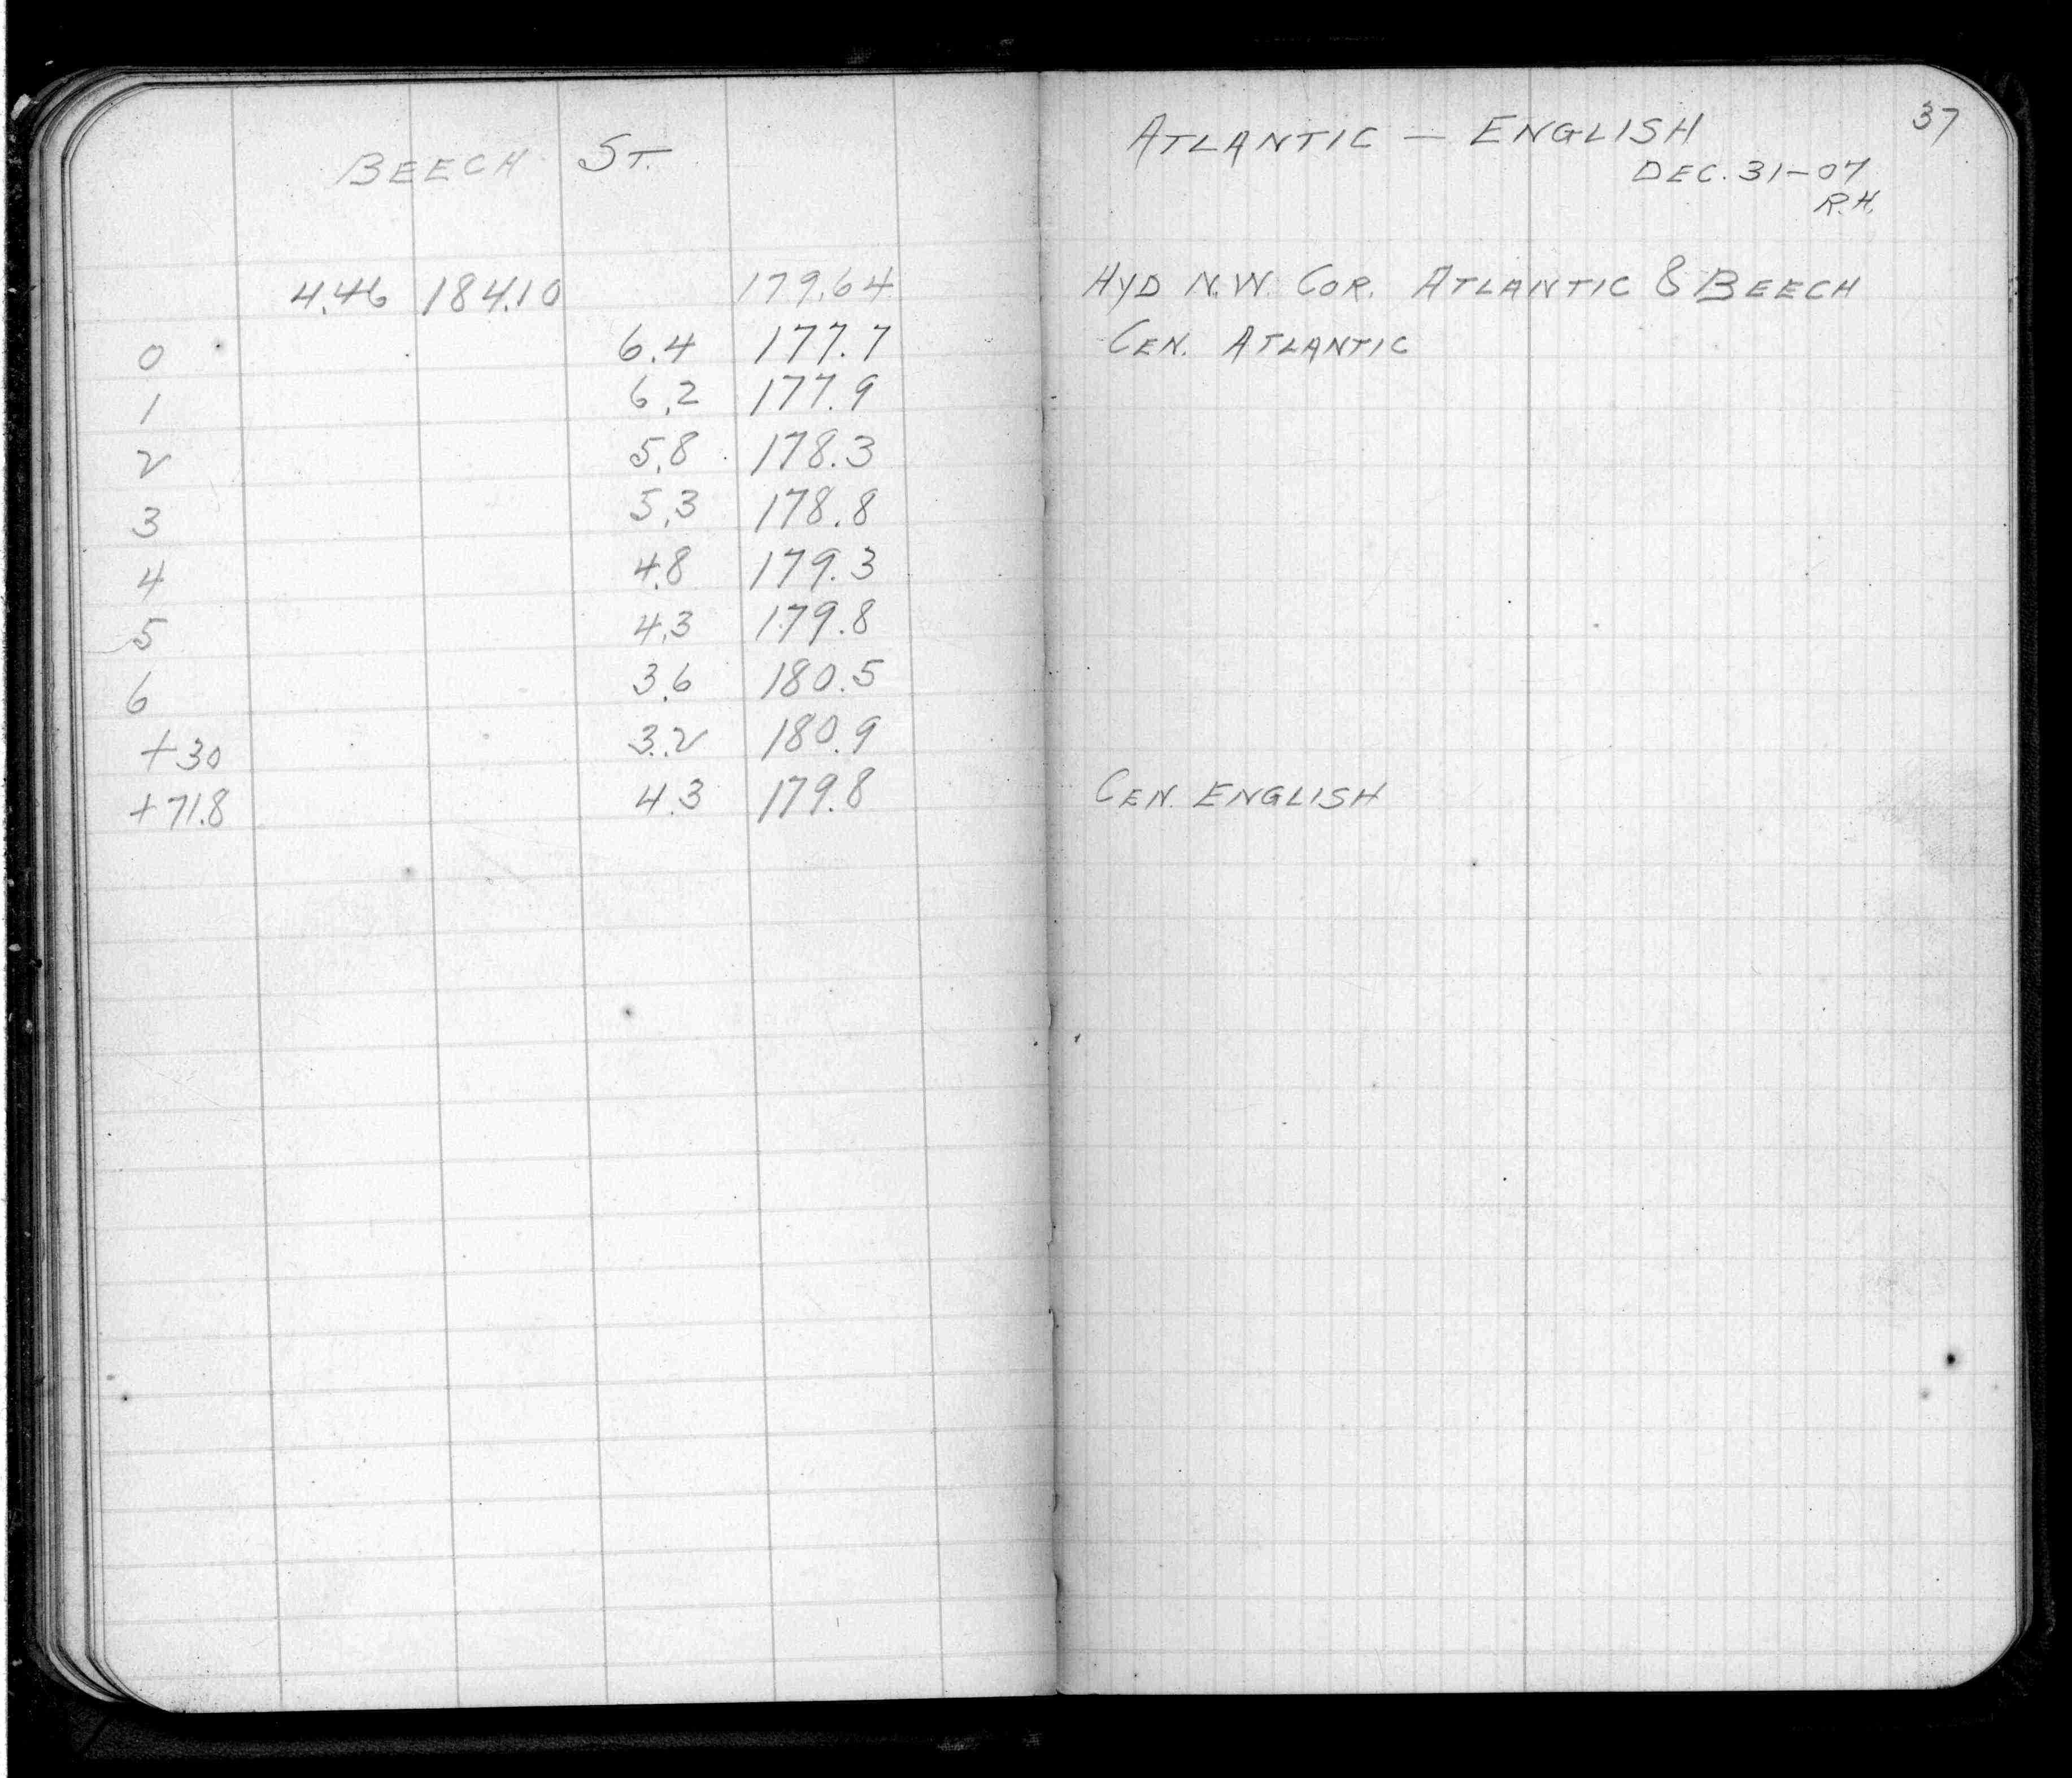 BEECH ST.
4.46 184.10 179.64
0 6.4 177.7
1 6.2 177.9
2 5.8 178.3
3 5.3 178.8
4 4.8 179.3
5 4.3 179.8
6 3.6 180.5
+30 3.2 180.9
+71.8 4.3 179.8
37
ATLANTIC — ENGLISH
DEC. 31-07
R.H.
HYD N.W. COR. ATLANTIC & BEECH
CEN. ATLANTIC
CEN. ENGLISH